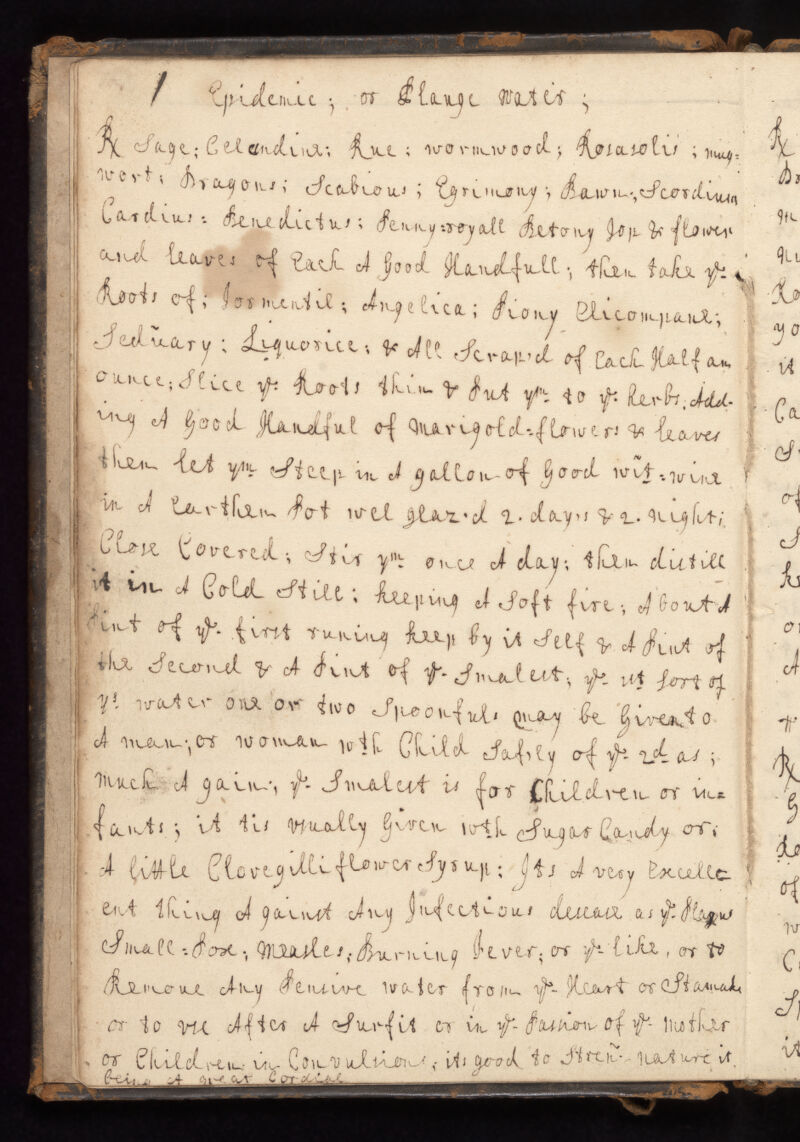 1 Epidemic; or Plauge water;
℞ Sage; Celandine; Rue; wormwood; Rosasolis; mug=
wort; Dragons; Scabious; Egrimony; Bawn; Scordium
Cardius: Benedictus; Penny=royall Betony Top & flower
and leaves of Each A Good Handfull; then take ye
Roots of; Tormentil; Angelica; Piony Elicompane;
Seduary; Liquorice; & All Scrap'd of Each Half an
ounce; Slice ye Roots thin & Put ym to ye herbs, Add-
ing A Good Handful of Marigold=flowers & leaves
then let ym Steep in A gallon of Good wit=wine
in A Earthen Pot wel glaz'd 2 days & 2 night;
Close Covered; Stir ym once A day; then distill
it in A Cold Still; keeping A soft fire; About A
Pint of ye first runing keep by it Self & A Pint of
the Second & A Pint of ye Smalest; ye 1st sort of
ys water one or two Spoonfuls may be Given to
A man; or woman wth Child Safely of ye 2d as;
much A gain; ye Smalest is for Children or in=
fants; it tis usually Given wth Sugar Candy or
A little Clovegilliflower Syrup; Its A very Excell
ent thing A gainst Any Infectious desease as ye Plague
Small=Pox; Measles; Burning Fever; or ye like, or to
Remove Any Pensive water from ye Heart or
or to use After A Surfit or in ye Passion of ye mother
or Children in Convulsions; its good to nature it
being A great Cordial
℞